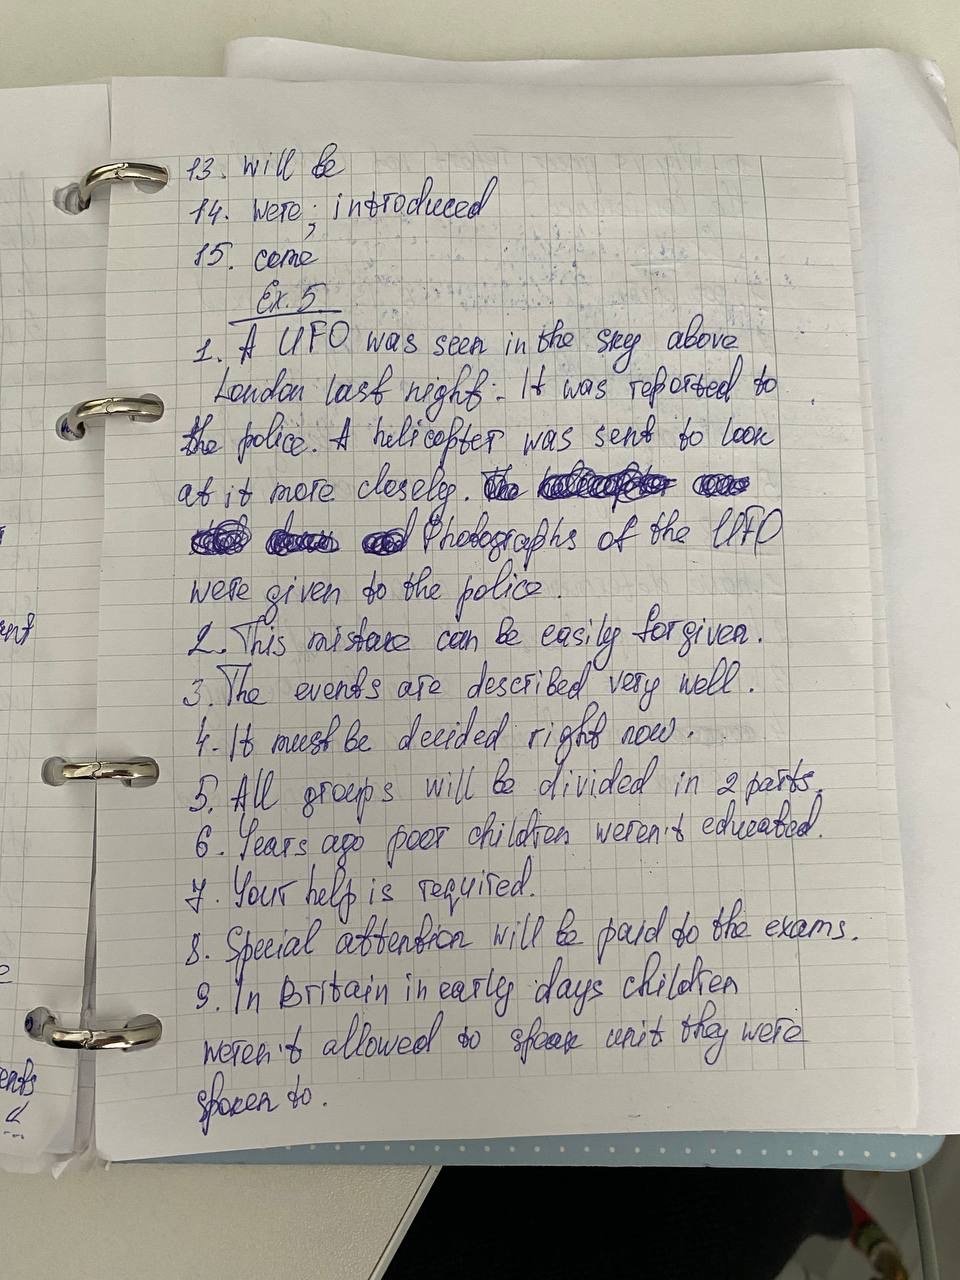 13. will be
14. were; introduced
15. come
Ex. 5.
1. A UFO was seen in the sky above
London last night. It was reported to
the police. A helicopter was sent to look
at it more closely. The
Photographs of the UFO
were given to the police.
2. This mistake can be easily forgiven.
3. The events are described very well.
4. It must be decided right now.
5. All groups will be divided in 2 parts.
6. Years ago poor children weren't educated.
7. Your help is required.
8. Special attention will be paid to the exams.
9. In Britain in early days children
weren't allowed to speak unit they were
spoken to.
ent
e
ents
d